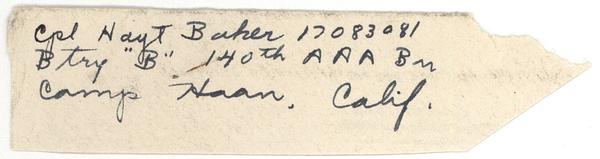 Cpl Hoyt Baker 17083081
Btry "B" 140th AAA Bn
Camp Haan, Calif.